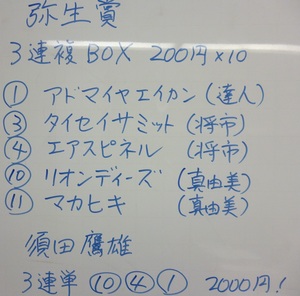 弥生賞
3連複BOX 200円×10
① アドマイヤエイカン(達人)
③ タイセイサミット(将市)
④ エアスピネル(将市)
⑩ リオンディーズ(真由美)
⑪ マカヒキ(真由美)
須田鷹雄
3連単 ⑩④① 2000円!